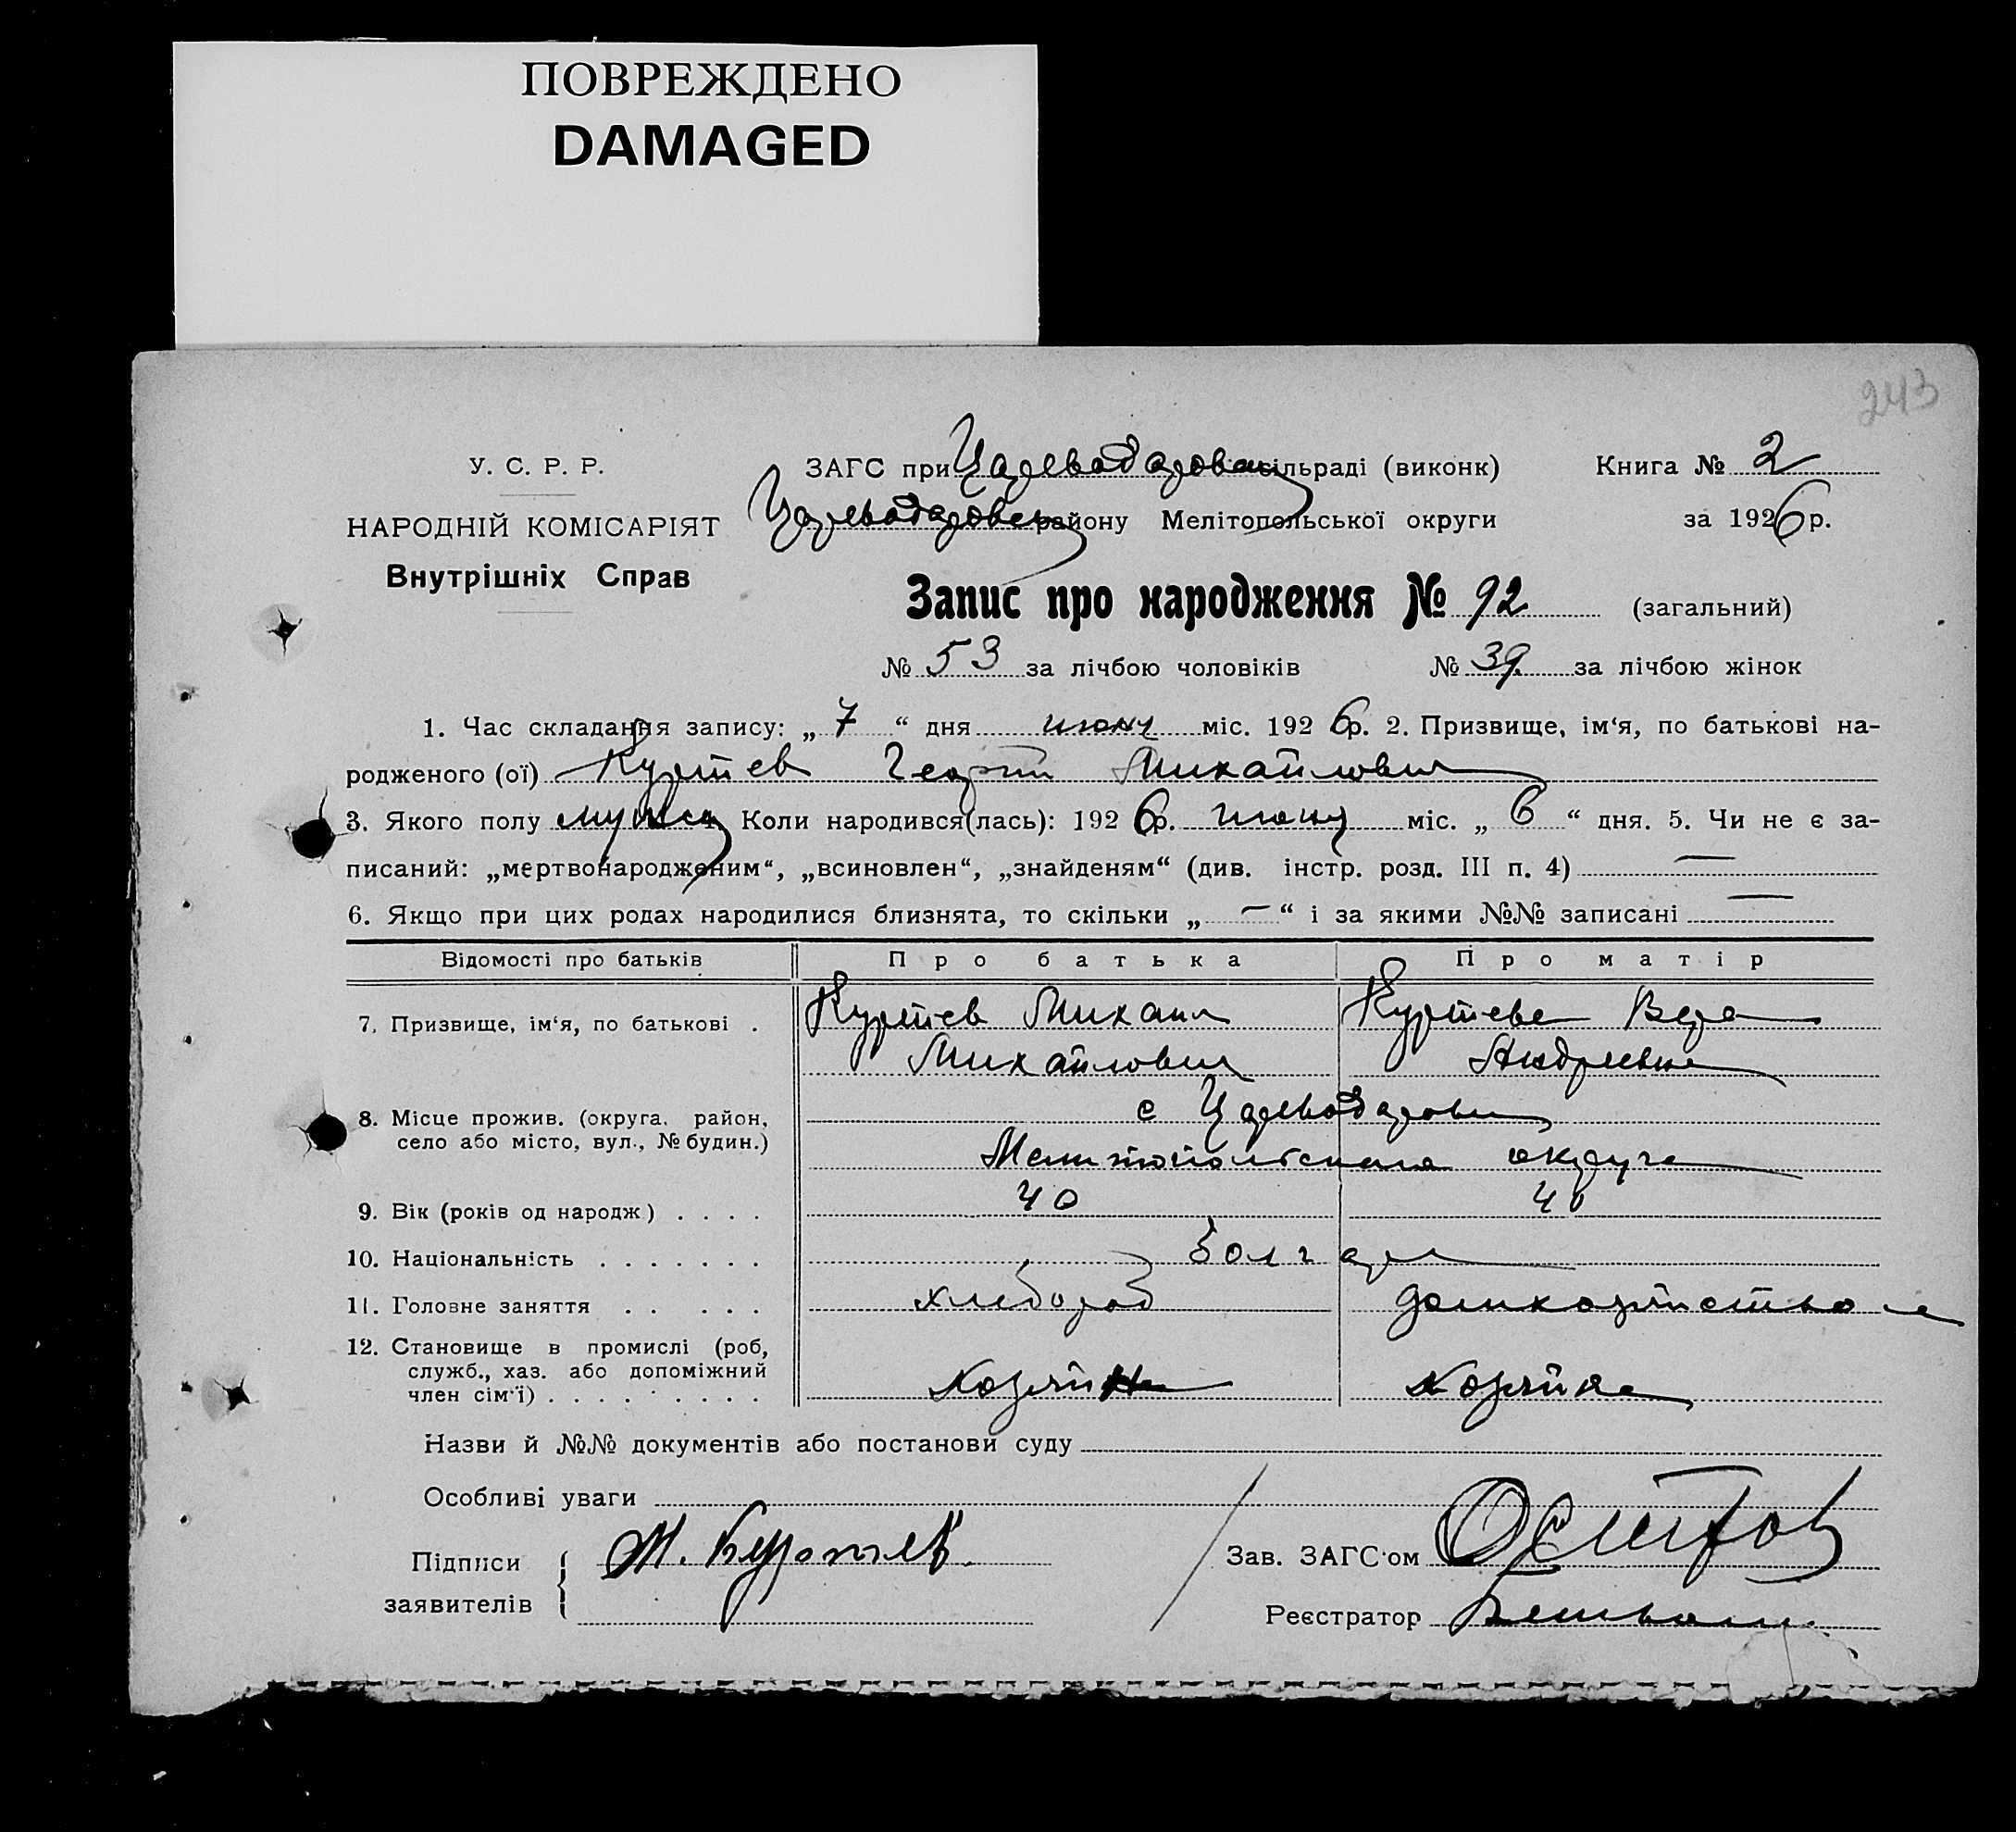 ПОВРЕЖДЕНО
DAMAGED
243
У. С. Р. Р.
НАРОДНІЙ КОМІСАРІЯТ
Внутрішніх Справ
ЗАГС при Цареводаровск сільраді (виконк) Книга № 2
Цареводаровск району Мелітопольської округи за 1926 р.
Запис про народження № 92 (загальний)
№ 53 за лічбою чоловіків № 39 за лічбою жінок
1. Час складання запису: „ 7 “ дня июня міс. 1926 р. 2. Призвище, ім‘я, по батькові на-
родженого (ої) Куртев Георгий Михайлович
3. Якого полу мужск 4. Коли народився(лась): 1926 р. июня міс. „ 6 “ дня. 5. Чи не є за-
писаний: „мертвонародженим“, „всиновлен“, „знайденям“ (див. інстр. розд. III п. 4) —
6. Якщо при цих родах народилися близнята, то скільки „ — “ і за якими №№ записані —
Відомості про батьків Про батька Про матір
7. Призвище, ім‘я, по батькові . Куртев Михаил Куртева Вера
Михайлович Андреевна
8. Місце прожив. (округа, район, с Цареводаровка
село або місто, вул., № будин.) Мелитопольского округа
9. Вік (років од народж) . . . . 40 40
10. Національність . . . . . . . Болгары
11. Головне заняття . . . . . хлебороб домхозяйство
12. Становище в промислі (роб,
служб., хаз. або допоміжний
член сім‘ї) . . . . . . . . хозяин хозяйка
Назви й №№ документів або постанови суду
Особливі уваги
Підписи
заявителів
М.
Зав. ЗАГС‘ом Осипов
Реєстратор